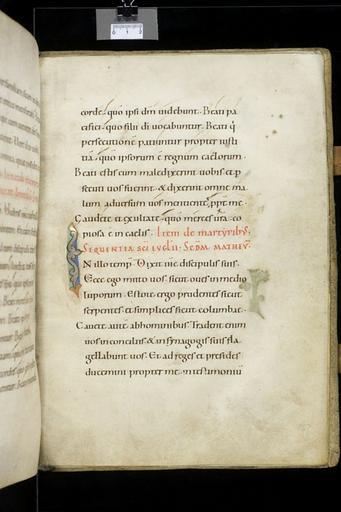 corde, quo ipsi dm uidebunt. Beati pa
cifici, quo filii di uocabuntur. Beati q
persecutionē patiuntur propter iusti
tiā, quo ipsorum ē regnum caelorum.
Beati estis cum maledixerint uobis et p
secuti uos fuerint & dixerint omne ma
lum aduersum uos mentientes ppt me.
Gaudete et exultate, quō merces uīa co
piosa ē in caelis. Item de martyribus
Sequentia sci euglii. Scdm Matheū.
In illo temp. Dixit ihc discipulis suis.
Ecce ego mitto uos sicut oues in medio
luporum. Estote ergo prudentes sicut
serpentes et simplices sicut columbae.
Cauete aute ab hominibus. Tradent enim
uos in conciliis & in synagogis suis fla
gellabunt uos. Et ad reges et presides
ducemini propter me in testimoniū